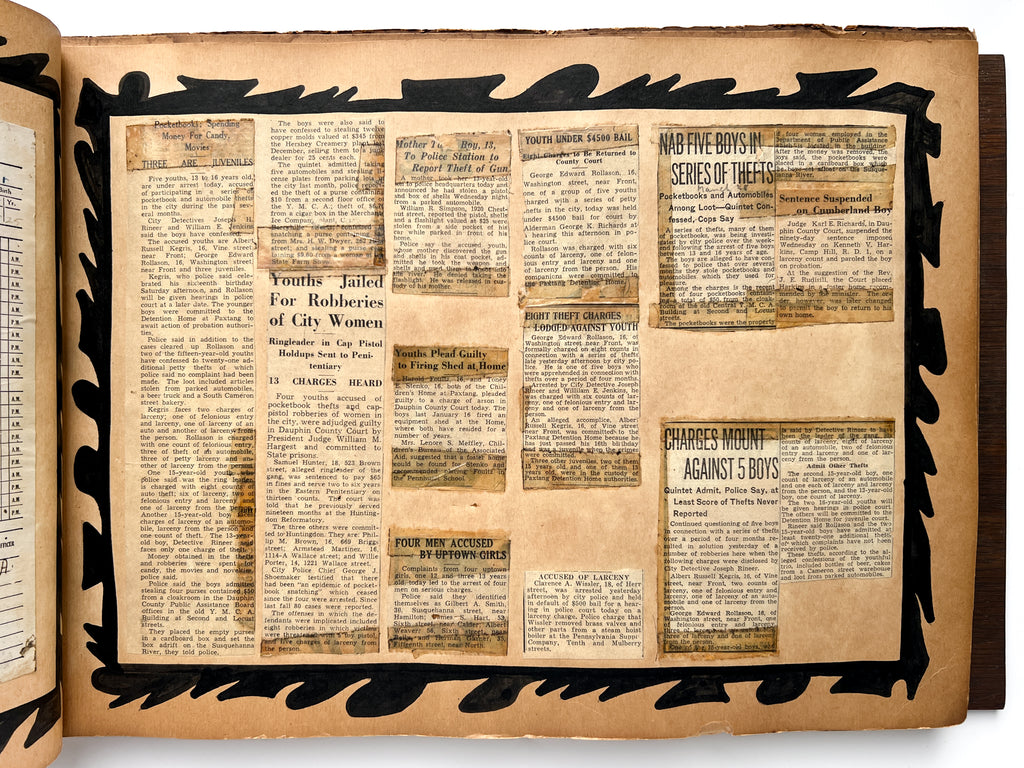 Pocketbooks; Spending
Money For Candy,
Movies
THREE ARE JUVENILES
Five youths, 13 to 16 years old,
are under arrest today, accused
of participating in a series of
pocketbook and automobile thefts
in the city during the past sev-
eral months.
City Detectives Joseph H.
Riner and William E. Jenkins
said the boys have confessed.
The accused youths are Albert
Russell Kegris, 16, Vine street
near Front; George Edward
Rollason, 16, Washington street,
near Front and three juveniles.
Kegris, who police said cele-
brated his sixteenth birthday
Saturday afternoon, and Rollason,
will be given hearings in police
court at a later date. The younger
boys were committed to the
Detention Home at Paxtang to
await action of probation authori-
ties.
Police said in addition to the
cases cleared up Rollason and
two of the fifteen-year-old youths
have confessed to twenty-one ad-
ditional petty thefts of which
police said no complaint had been
made. The loot included articles
stolen from parked automobiles,
a beer truck and a South Cameron
street bakery.
Kegris faces two charges of
larceny; one of felonious entry
and larceny, one of larceny of an
auto and another of larceny from
the person. Rollason is charged
with one count of felonious entry,
three of theft of an automobile,
six of larceny and one an-
other of larceny from the person.
One 15-year-old youth who
police said was the ring leader,
is charged with eight counts of
auto theft; six of larceny, two of
felonious entry and larceny and
one of larceny from the person.
Another 15-year-old boy faces
charges of larceny of an automo-
bile, larceny from the person and
one count of theft. The 13-year-
old boy, Detective Riner said
faces only one charge of theft.
Money obtained in the thefts
and robberies were spent for
candy, the movies and novelties,
police said.
Police said the boys admitted
stealing four purses contained $50
from a cloakroom in the Dauphin
County Public Assistance Board
offices in the old Y. M. C. A.
Building at Second and Locust
streets.
They placed the empty purses
in a cardboard box and set the
box adrift on the Susquehanna
River, they told police.
The boys were also said to
have confessed to stealing twelve
copper molds valued at $345 from
the Hershey Creamery plant last
December, selling them to a junk
dealer for 25 cents each.
The quintet admitted taking
five automobiles and stealing li-
cense plates from parking lots in
the city last month, police reported,
and the theft of a purse containing
$10 from a second floor office of
the Y. M. C. A.; theft of $6.75
from a cigar box in the Merchants
Ice Company
snatching a purse containing
from Mrs. H. W. Dwyer, 262
street; and stealing
Youths Jailed
For Robberies
of City Women
Ringleader in Cap Pistol
Holdups Sent to Peni-
tentiary
13 CHARGES HEARD
Four youths accused of
pocketbook thefts and cap-
pistol robberies of women in
the city, were adjudged guilty
in Dauphin County Court by
President Judge William M.
Hargest and committed to
State prisons.
Samuel Hunter, 18, 523 Brown
street, alleged ringleader of the
gang, was sentenced to pay $65
in fines and serve two to six years
in the Eastern Penitentiary on
thirteen counts. The court was
told that he previously served
nineteen months at the Hunting-
don Reformatory.
The three others were commit-
ted to Huntingdon. They are: Phil-
ip M. Brown, 16, 669 Briggs
street; Armstead Martinez, 16,
1114-A Wallace street; and Willie
Porter, 14, 1221 Wallace street.
City Police Chief George J.
Shoemaker testified that there
had been "an epidemic of pocket-
book snatching" which ceased
since the four were arrested. Since
last fall 80 cases were reported.
The offenses in which the de-
fendants were implicated included
eight robberies in which victims
were threatened with a toy pistol,
five charges of larceny from
the person.
Mother Boy, 13,
To Police Station to
Report Theft of Gun
A mother took her 13-year-old
to police headquarters today and
announced he had stolen a pistol
and box of shells Wednesday night
from a parked automobile.
William R. Simmons, 1920 Chest-
nut street, reported the pistol, shells
and a flashlight valued at $25 were
stolen from a side pocket of his
car while parked in front of his
home.
Police say the accused youth,
whose mother discovered the gun
and shells in his coat pocket, ad-
mitted he took the weapon and
shells and used them
the river. He denied taking the
flashlight. He was released in cus-
tody of his mother.
Youths Plead Guilty
to Firing Shed at Home
Harold Foultz, 16, and Toney
E. Stenko, 16, both of the Chil-
dren's Home at Paxtang, pleaded
guilty to a charge of arson in
Dauphin County Court today. The
boys last January 16 fired an
equipment shed at the Home,
where both have resided for a
number of years.
Mrs. Lenore S. Meffley, Chil-
dren's Bureau of the Associated
Aid, suggested that a foster home
would be found for Stenko and
recommended placing Foultz in
the Pennhurst School.
FOUR MEN ACCUSED
BY UPTOWN GIRLS
Complaints from four uptown
girls, one 12 and three 13 years
old, today led to the arrest of four
men on serious charges.
Police said they identified
themselves as Gilbert A. Smith,
39, Susquehanna street, near
Hamilton; James S. Hart, 53,
Sixth street, near Calder; Albert
Weaver, 56, Sixth street, near
Reily, and Herman Garber, 72,
Fifteenth street, near North.
YOUTH UNDER $4500 BAIL
Eight Charges to Be Returned to
County Court
George Edward Rollason, 16,
Washington street, near Front,
one of a group of five youths
charged with a series of petty
thefts in the city, today was held
under $4500 bail for court by
Alderman George K. Richards at
a hearing this afternoon in po-
lice court.
Rollason was charged with six
counts of larceny, one of felon-
ious entry and larceny, and one
of larceny from the person. His
companions were committed to
the Paxtang Detention Home.
EIGHT THEFT CHARGES
LODGED AGAINST YOUTH
George Edward Rollason, 16, of
Washington street near Front, was
formally charged on eight counts in
connection with a series of thefts
late yesterday afternoon by city po-
lice. He is one of five boys who
were apprehended in connection with
thefts over a period of four months.
Arrested by City Detective Joseph
Riner and William E. Jenkins, he
was charged with six counts of lar-
ceny, one of felonious entry and lar-
ceny and one of larceny from the
person.
An alleged accomplice, Albert
Russell Kegris, 16, of Vine street
near Front, was committed to the
Paxtang Detention Home because he
had just passed his 16th birthday
and was a juvenile when the crimes
were committed.
Three other juveniles, two of them
15 years old, and one of them 13
years old, were in the custody of
the Paxtang Detention Home authorities.
ACCUSED OF LARCENY
Clarence A. Wissler, 18, of Herr
street, was arrested yesterday
afternoon by city police and held
in default of $500 bail for a hear-
ing in police court today on a
larceny charge. Police charge that
Wissler removed brass valves and
other parts from a steam hoist
boiler at the Pennsylvania Supply
Company, Tenth and Mulberry
streets.
NAB FIVE BOYS IN
SERIES OF THEFTS
March 28
Pocketbooks and Automobiles
Among Loot—Quintet Con-
fessed, Cops Say
A series of thefts, many of them
pocketbooks, was being investi-
gated by city police over the week-
end following the arrest of five boys
between 13 and 16 years of age.
The boys are alleged to have con-
fessed to police that over several
months they stole pocketbooks and
automobiles which they used for
pleasure.
Among the charges is the recent
theft of four pocketbooks containing
a total of $50 from the cloak
room of the old Central Y. M. C. A.
Building at Second and Locust
streets.
The pocketbooks were the property
of four women employed in the
Department of Public Assistance
which is located in the building.
After the money was removed, the
boys said, the pocketbooks were
placed in a cardboard box which
the boys set afloat on the Susque-
hanna River.
Sentence Suspended
on Cumberland Boy
Judge Karl E. Richards, in Dau-
phin County Court, suspended the
ninety-day sentence imposed
Wednesday on Kenneth V. Har-
kins, Camp Hill, R. D. 1, on a
larceny count and paroled the boy
on probation.
At the suggestion of the Rev.
J. E. Rudisill, the Court placed
Harkins in a foster home recom-
mended by the minister. The or-
der, however, was later changed
to permit the boy to return to his
own home.
CHARGES MOUNT
AGAINST 5 BOYS
Quintet Admit, Police Say, at
Least Score of Thefts Never
Reported
Continued questioning of five boys
in connection with a series of thefts
over a period of four months re-
sulted in solution yesterday of a
number of robberies here when the
following charges were disclosed by
City Detective Joseph Riner.
Albert Russell Kegris, 16, of Vine
street, near Front, two counts of
larceny, one of felonious entry and
larceny, one of larceny of an auto-
mobile and one of larceny from the
person.
George Edward Rollason, 16, of
Washington street, near Front, one
of felonious entry and larceny,
three of larceny of an automobile,
three of larceny and one of larceny
from the person.
One of the 15-year-old boys, who
is said by Detective Riner to have
been the leader of the gang,
counts of larceny, eight of larceny
of an automobile, two of felonious
entry and larceny and one of lar-
ceny from the person.
Admit Other Thefts
The second 15-year-old boy, one
count of larceny of an automobile
and one each of larceny and larceny
from the person, and the 13-year-old
boy, one count of larceny.
The two 16-year-old youths will
be given hearings in police court.
The others will be committed to the
Detention Home for juvenile court.
Riner said Rollason and the two
15-year-old boys have admitted at
least twenty-one additional thefts
of which complaints have not been
received by police.
These thefts, according to the al-
leged confessions of the youthful
trio, included bottles of beer, cakes
from a Cameron street warehouse
and loot from parked automobiles.
A.M.
P.M.